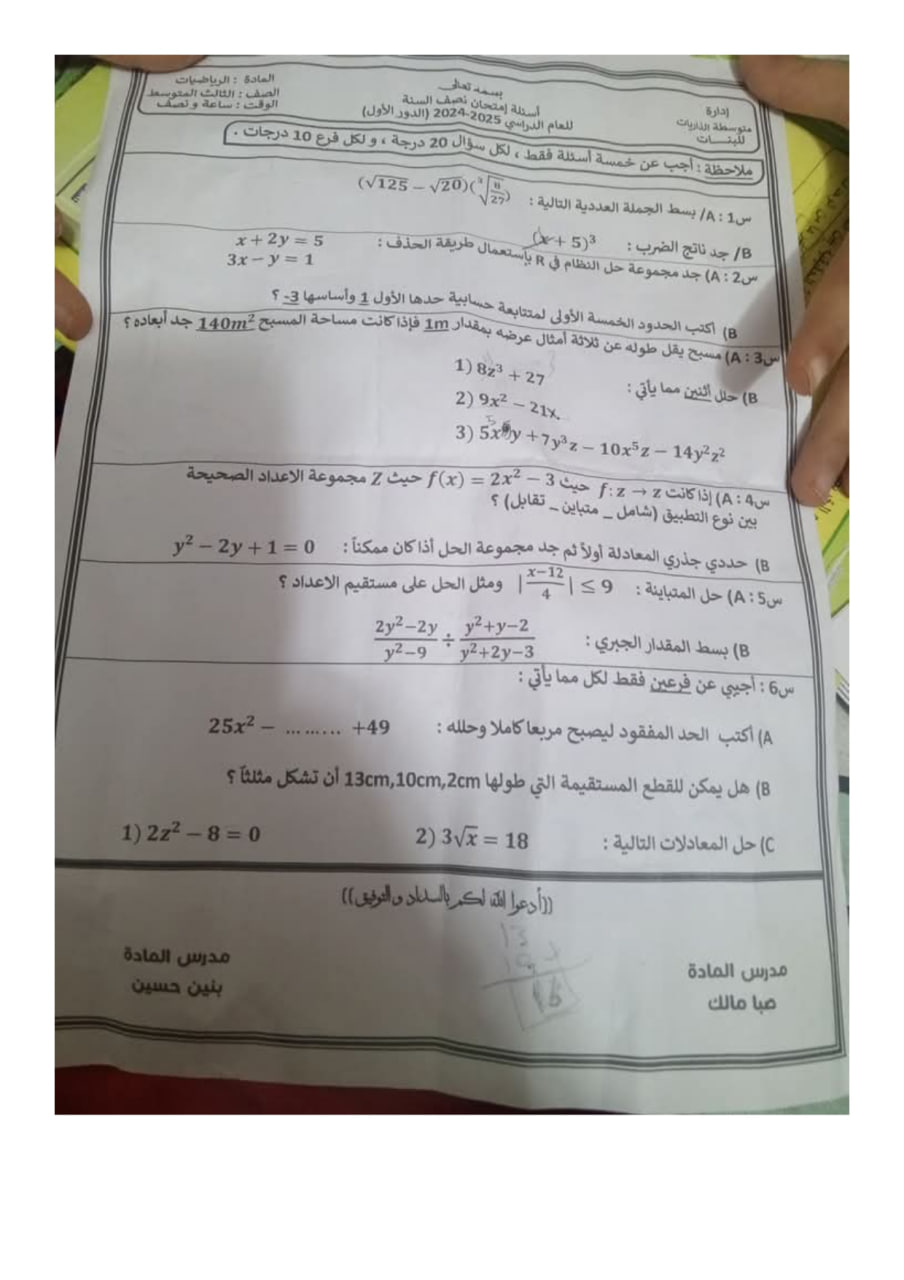 بسمه تعالى
إدارة
متوسطة الذاريات
للبنــــات
أسئلة إمتحان نصف السنة
للعام الدراسي 2025-2024 (الدور الأول)
المادة : الرياضيات
الصف : الثالث المتوسط
الوقت : ساعة و نصف
ملاحظة : أجب عن خمسة أسئلة فقط ، لكل سؤال 20 درجة ، و لكل فرع 10 درجات .
س1 : A/ بسط الجملة العددية التالية : (√125 − √20)(∛(8/27))
B/ جد ناتج الضرب : (x + 5)³
س2 : A) جد مجموعة حل النظام في R بأستعمال طريقة الحذف : x + 2y = 5
3x − y = 1
B) أكتب الحدود الخمسة الأولى لمتتابعة حسابية حدها الأول 1 وأساسها 3- ؟
س3 : A) مسبح يقل طوله عن ثلاثة أمثال عرضه بمقدار 1m فإذا كانت مساحة المسبح 140m² جد أبعاده ؟
B) حلل أثنين مما يأتي : 1) 8z³ + 27
2) 9x² − 21x.
3) 5x⁵y + 7y³z − 10x⁵z − 14y²z²
س4 : A) إذا كانت f: z → z حيث f(x) = 2x² − 3 حيث Z مجموعة الاعداد الصحيحة
بين نوع التطبيق (شامل _ متباين _ تقابل) ؟
B) حددي جذري المعادلة أولاً ثم جد مجموعة الحل أذا كان ممكناً : y² − 2y + 1 = 0
س5 : A) حل المتباينة : |(x−12)/4| ≤ 9 ومثل الحل على مستقيم الاعداد ؟
B) بسط المقدار الجبري : (2y²−2y)/(y²−9) ÷ (y²+y−2)/(y²+2y−3)
س6 : أجيبي عن فرعين فقط لكل مما يأتي :
A) أكتب الحد المفقود ليصبح مربعا كاملا وحلله : 25x² − ... ...... +49
B) هل يمكن للقطع المستقيمة التي طولها 13cm,10cm,2cm أن تشكل مثلثاً ؟
C) حل المعادلات التالية : 2) 3√x = 18 1) 2z² − 8 = 0
((أدعوا الله لكم بالسداد و التوفيق))
13
16
مدرس المادة
صبا مالك
مدرس المادة
بنين حسين